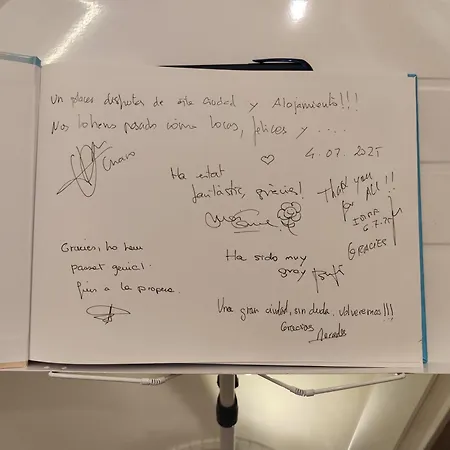 Un placer disfrutar de esta ciudad y Alojamiento!!!
Nos lo hemos pasado como locas, felices y ....
4.07.2025
Charo
Ha estat
fantàstic, gràcies!
Thank you
for ALL!!
6.7.25
GRACIES
Gracies, ho hem
passat genial!
fins a la propera.
Ha sido muy
guay
Una gran ciudad, sin duda. Volveremos!!!
Gracias
Mercedes